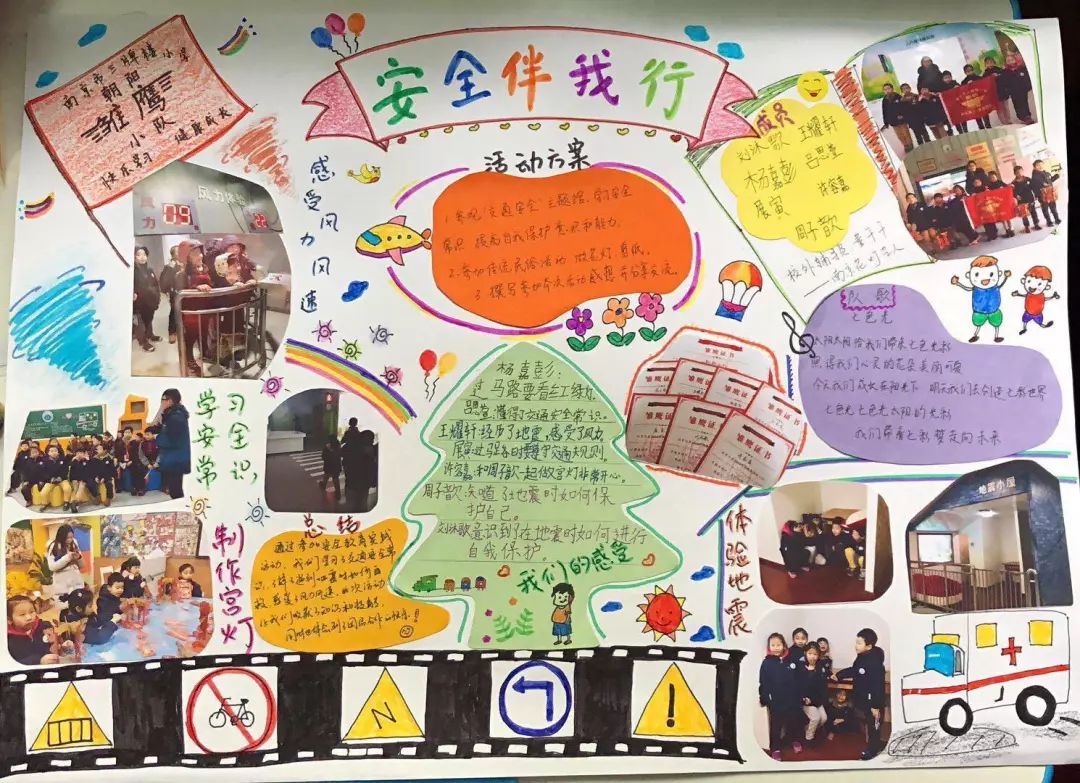 安全伴我行
南京市三牌楼小学
朝阳
雏鹰
小队
快乐学习 健康成长
感受风力风速
风力体验
活动方案
1.参观"交通安全"主题馆,学习安全
常识,提高自我保护意识和能力。
2.参加传统民俗活动 做花灯、剪纸。
3.撰写参加本次活动感想 并分享交流。
成员
刘沐歌 王耀轩
杨嘉彭 吕思萱
展寅 许容嘉
周子歆
校外辅导员
南京花灯艺人
队歌
七色光
太阳太阳给我们带来七色光彩
照得我们心灵的花朵美丽可爱
今天我们成长在阳光下 明天我们去创造七彩世界
七色光七色光太阳的光彩
我们带着七彩梦走向未来
学习安全常识,
制作宫灯
总结
通过参加安全教育实践
活动,我们学习了交通安全常
让我们收获了知识和技能,
同时也体会到了团队合作的快乐!
杨嘉彭:
过马路要看红绿灯。
吕思萱懂得交通安全常识。
王耀轩经历了地震,感受了风力。
许容嘉和周子歆一起做宫灯非常开心。
在地震时如何保
护自己。
刘沐歌意识到了在地震时如何进行
自我保护
我们的感受
荣誉证书
荣誉证书
荣誉证书
荣誉证书
荣誉证书
荣誉证书
荣誉证书
体验地震
地震小屋